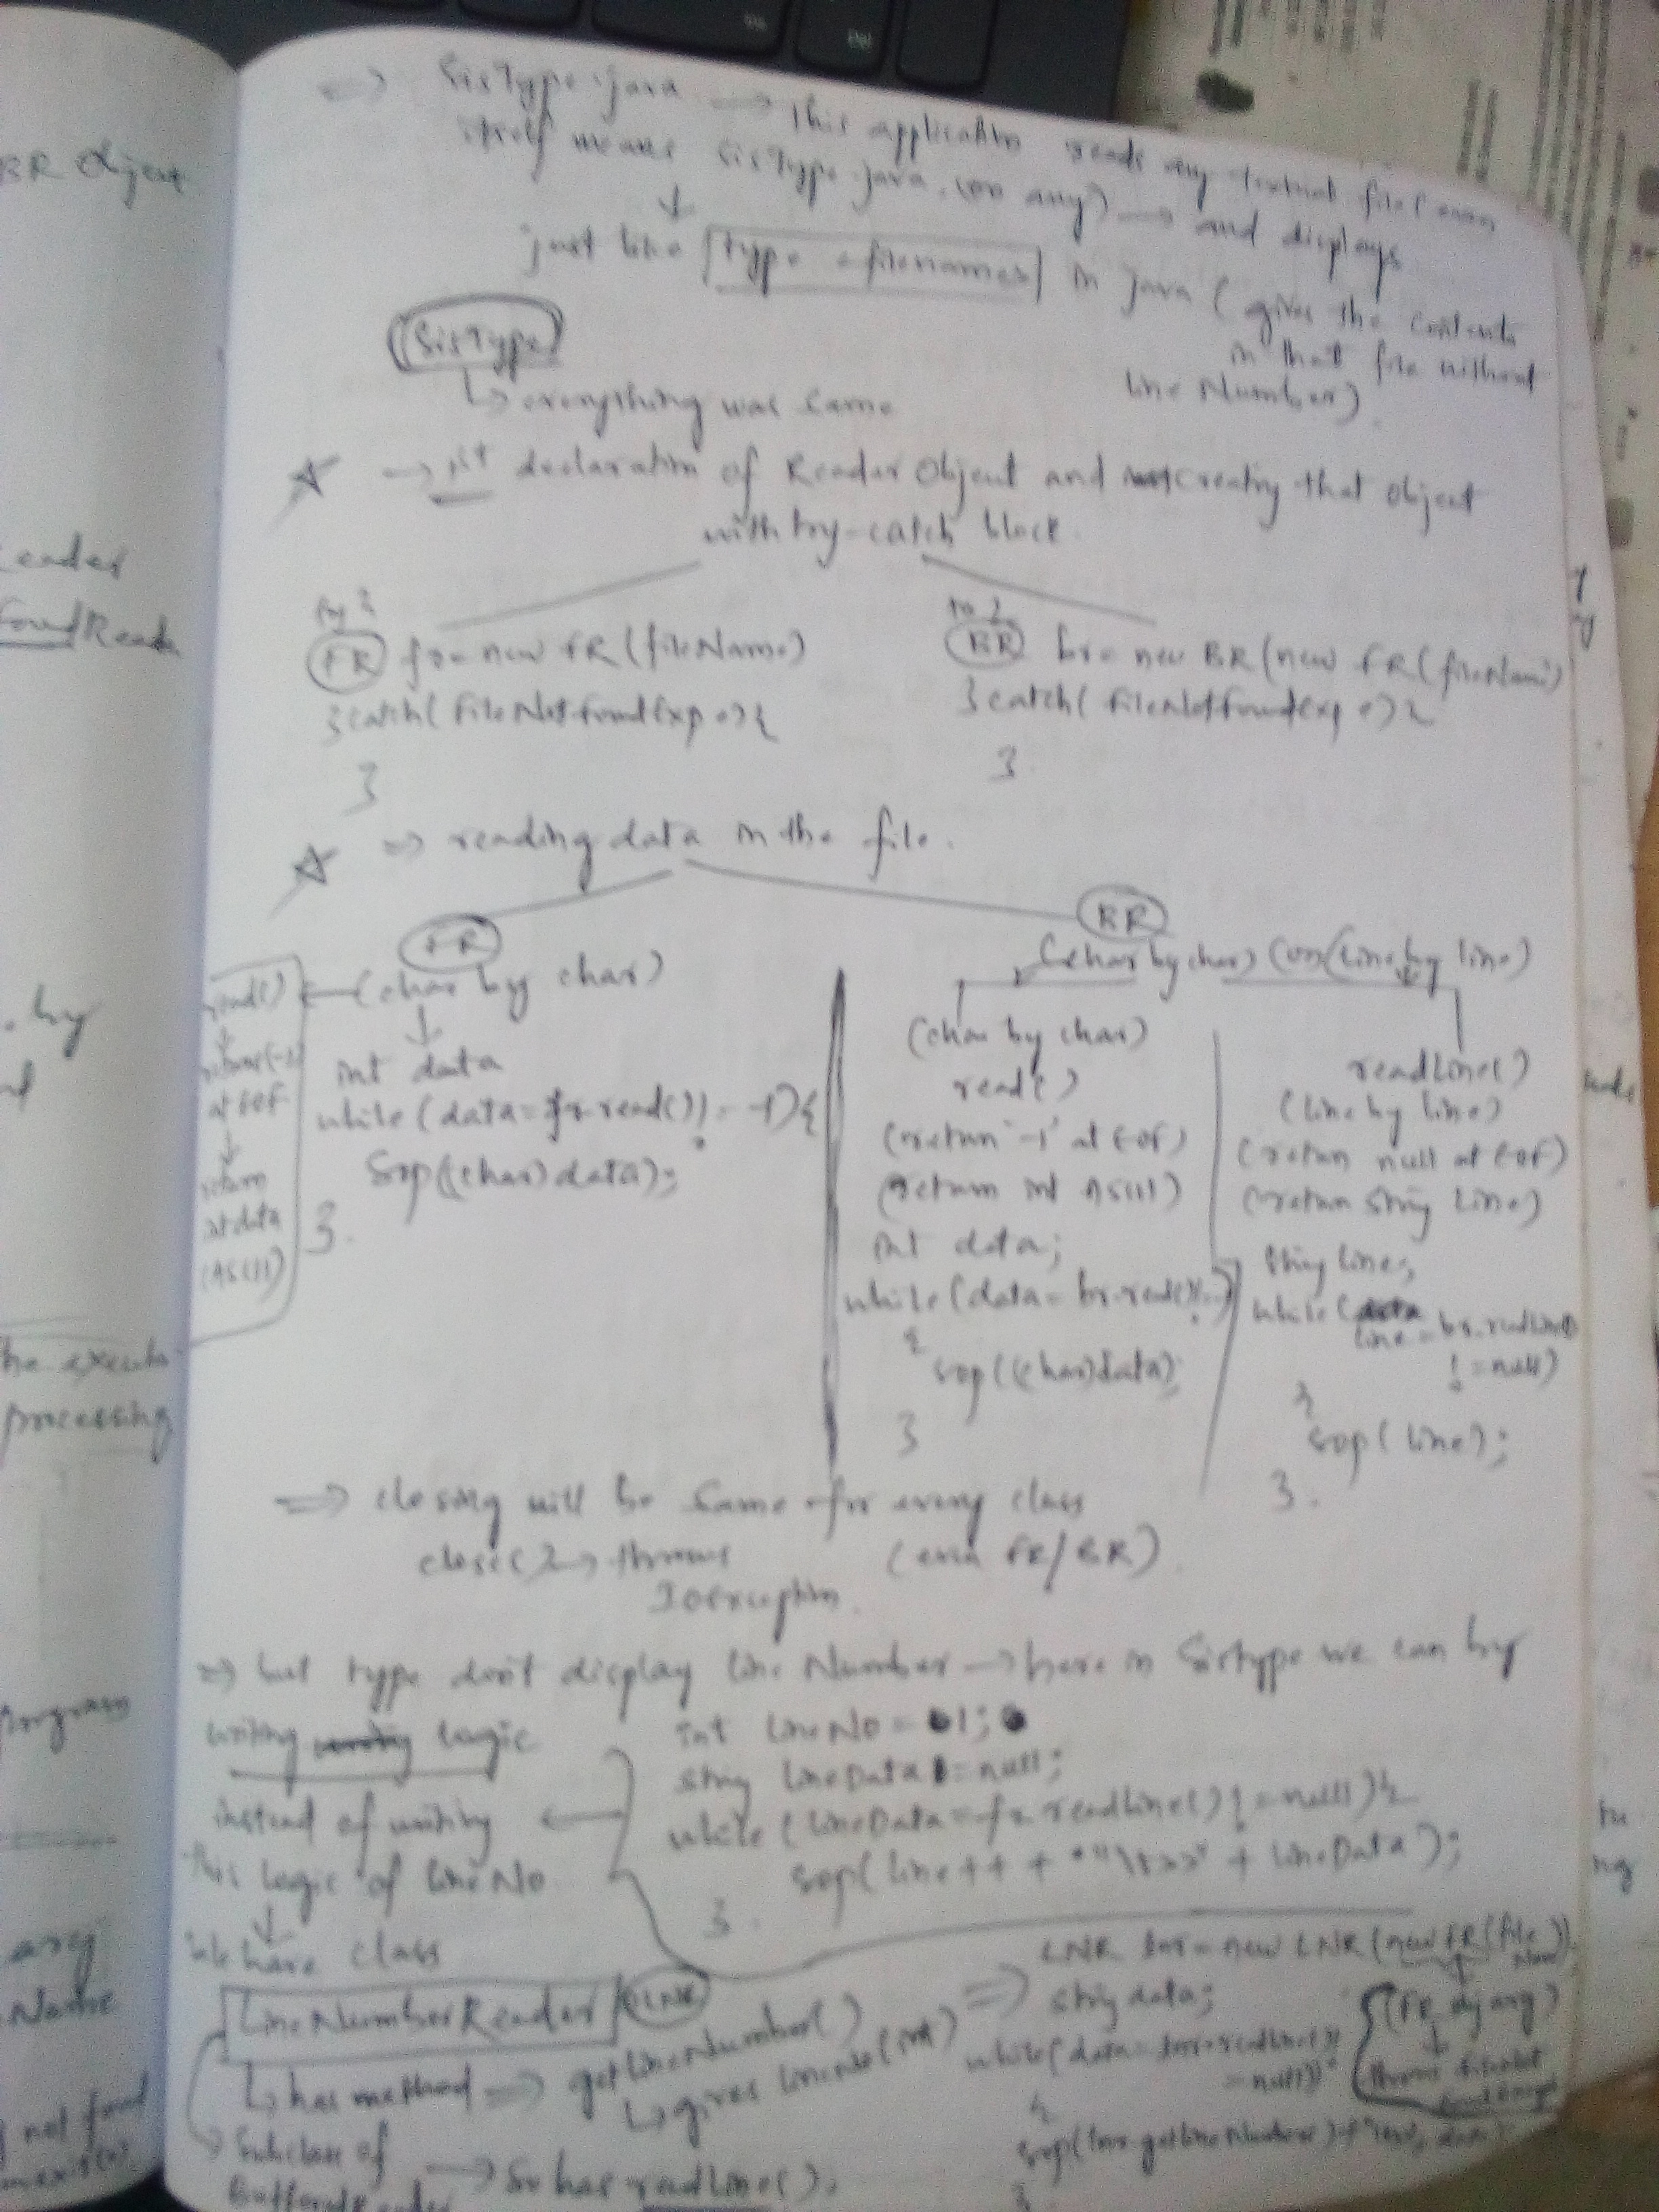 BR Object
eader
FoundReade
. by
he execute
processing
program
arg
Name
not found
⇒ SisType.java → This application reads any textual file (even
itself means SisType.java (or any) → and displays
↓
just like type filenames in java (gives the contents
in that file without
line Number)
SisType
↳ everything was same
☆ → 1st declaration of Reader Object and creating that object
with try-catch block.
try {
FR fr = new FR(fileName)
}catch(FileNotFoundExp e){
}
try {
BR br = new BR(new FR(fileName)
}catch(FileNotFoundExp e){
}
☆ ⇒ reading data in the file.
FR
(char by char)
read()
↓
return(-1)
at EOF
↓
return
int data
(ASCII)
int data
while(data=fr.read()!=-1){
Sop((char)data);
}
BR
(char by char) (or) (line by line)
(char by char)
read()
(return '-1' at EOF)
(return int ASCII)
int data;
while(data=br.read()!=-1)
{
sop((char)data);
}
readLine()
(line by line)
(return null at EOF)
(return String Line)
String line;
while(
line=br.readLine()
!=null)
{
sop(line);
}
⇒ closing will be same for every class
close() → throws (even FR/BR)
IOException
⇒ but type don't display line Number → here in SisType we can by
writing logic
int lineNo = 1;
String lineData = null;
while(lineData=fr.readLine()!=null){
sop(line++ + + lineData);
}
instead of writing
this logic of lineNo
↓
we have class
LineNumberReader LNR
↳ has method ⇒ getLineNumber()
↳ gives lineNo(int)
Subclass of
BufferedReader → So has readLine().
⇒ LNR lnr = new LNR(new FR(file
Name))
String data;
while(data=lnr.readLine()!
=null))
{
sop(lnr.getLineNumber()
}
(FR obj arg)
↓
throws FileNot